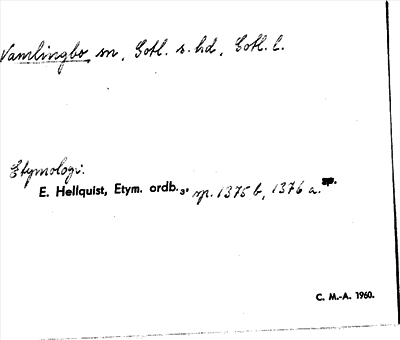 Vamlingbo sn, Gotl. s. hd, Gotl. l.
Etymologi:
E. Hellquist, Etym. ordb.₃, sp. 1375 b, 1376 a.
C. M.-A. 1960.